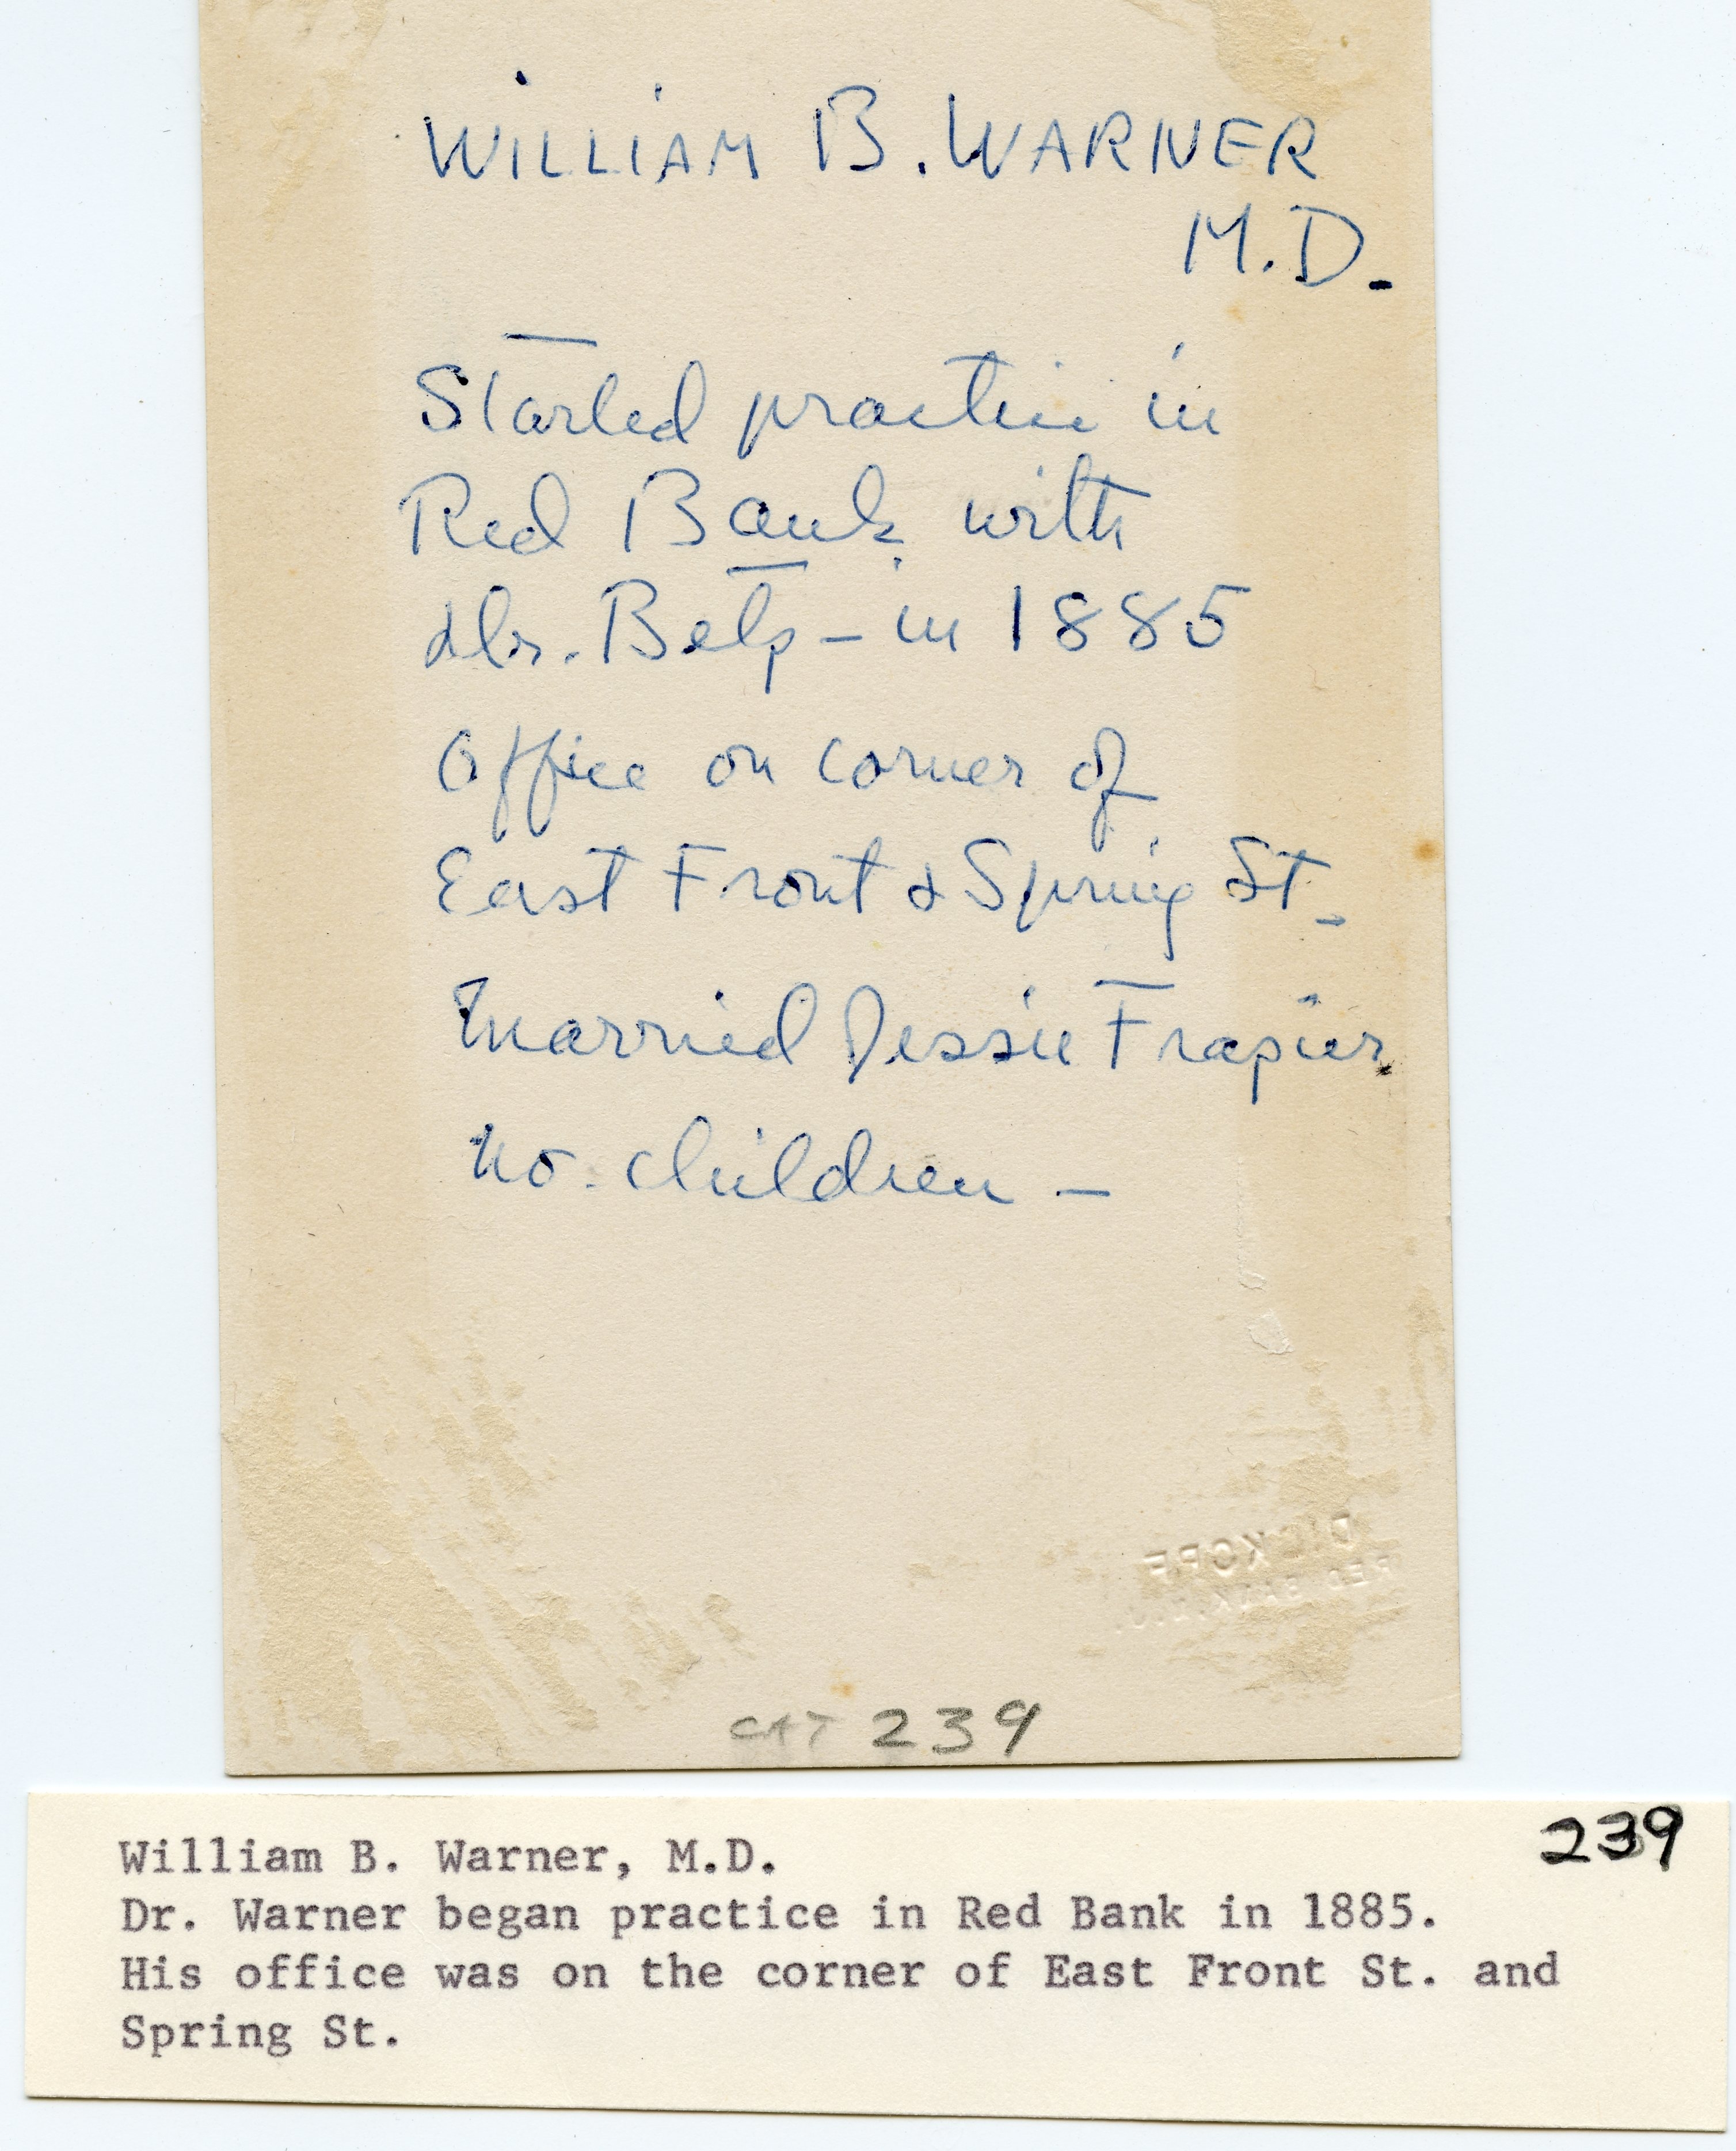 WILLIAM B. WARNER
M.D.
Started practice in
Red Bank with
Dr. Betz - in 1885
Office on corner of
East Front & Spring St.
Married Jessie Frazier.
No children -
DICKOPF
RED BANK, N.J.
CAT 239
239
William B. Warner, M.D.
Dr. Warner began practice in Red Bank in 1885.
His office was on the corner of East Front St. and
Spring St.